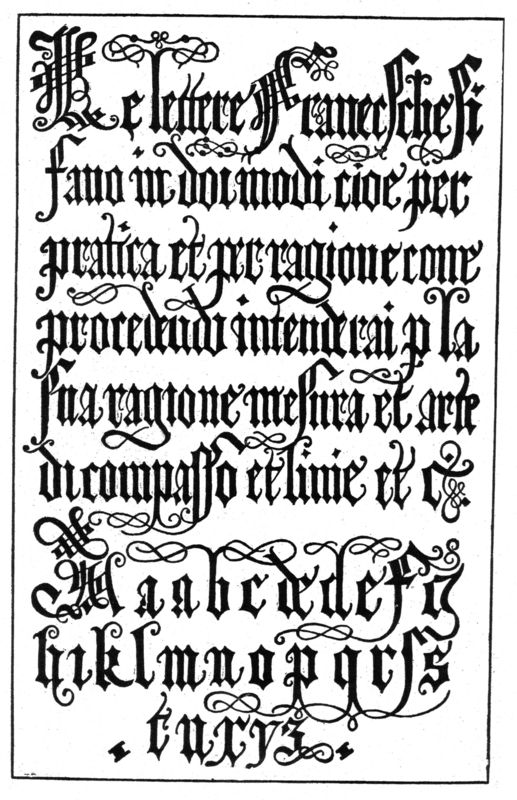 Le lettere Franceſche ſi
fano in doi modi cioe per
pratica et per ragione come
procedendo intenderai p la
ſua ragione meſura et arte
di compaſſo et linie et c.
A a a b c d e d e f g
h i k l m n o p q r ſ s
t u x y z